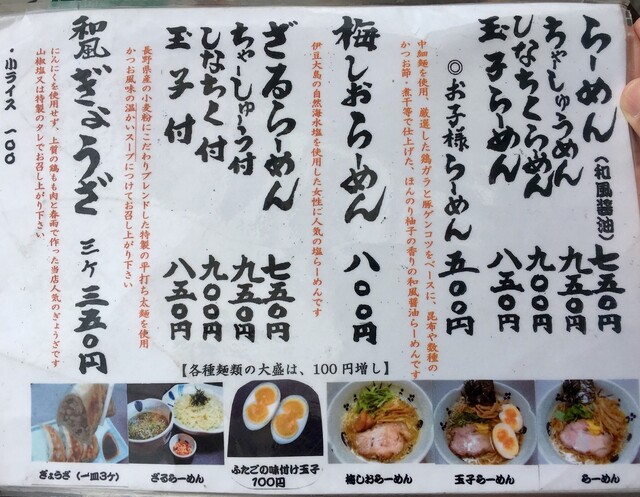 らーめん（和風醤油）七五〇円
ちゃーしゅうめん 九五〇円
しなちくらーめん 九〇〇円
玉子らーめん 八五〇円
◎お子様らーめん 五〇〇円
中細麺を使用。厳選した鶏ガラと豚ゲンコツをベースに、昆布や数種の
かつお節・煮干等で仕上げた、ほんのり柚子の香りの和風醤油らーめんです
梅しおらーめん 八〇〇円
伊豆大島の自然海水塩を使用した女性に人気の塩らーめんです
ざるらーめん 七五〇円
ちゃーしゅう付 九五〇円
しなちく付 九〇〇円
玉子付 八五〇円
長野県産の小麦粉にこだわりブレンドした特製の平打ち太麺を使用
かつお風味の温かいスープにつけてお召し上がり下さい
和風ぎょうざ 三ケ 三五〇円
にんにくを使用せず、上質の鶏もも肉と春雨で作った当店人気のぎょうざです
山椒塩又は特製のタレでお召し上がり下さい
・小ライス 一〇〇
【各種麺類の大盛は、100円増し】
ぎょうざ（一皿3ケ）
ざるらーめん
ふたごの味付け玉子
100円
梅しおらーめん
玉子らーめん
らーめん